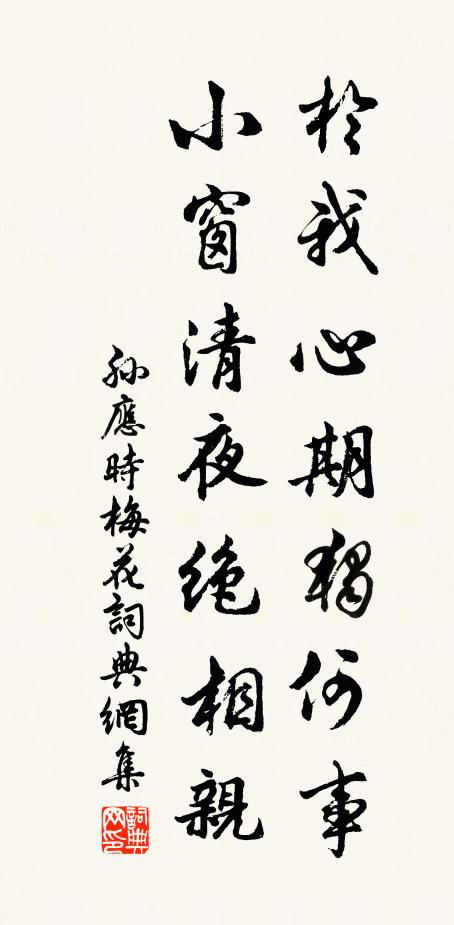 於我心期獨何事
小窗清夜絶相親
孫應時梅花詞典網集
詞典網印